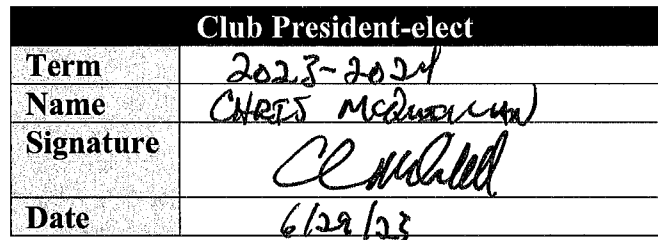 Club President-elect
Term 2023-2024
Name CHRIS
Signature
Date 6/29/23